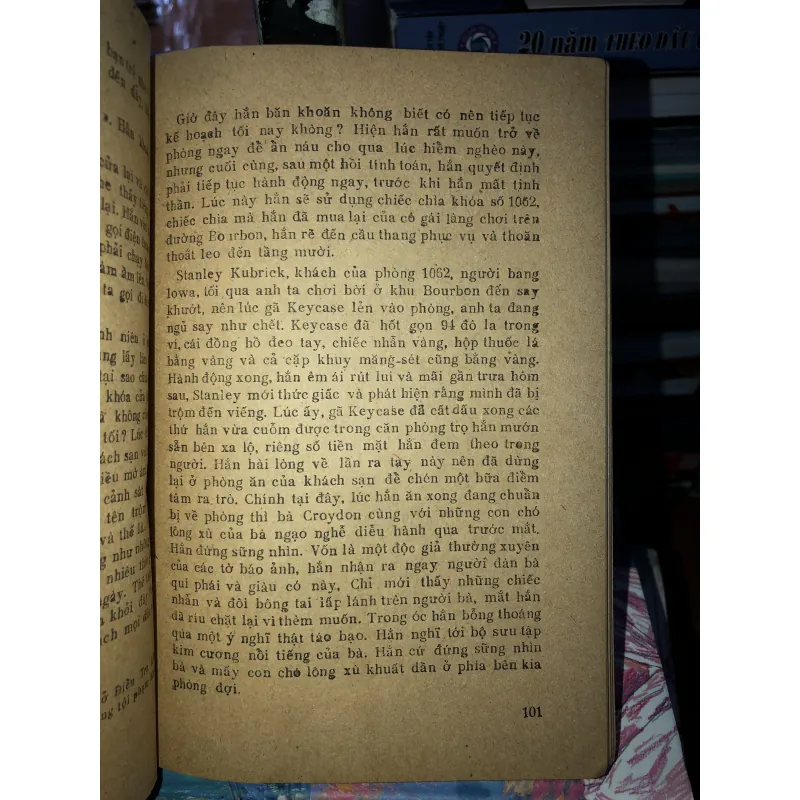 20 năm THEO DẤU
Giờ đây hắn băn khoăn không biết có nên tiếp tục
kế hoạch tối nay không? Hiện hắn rất muốn trở về
phòng ngay để ẩn náu cho qua lúc hiểm nghèo này,
nhưng cuối cùng, sau một hồi tính toán, hắn quyết định
phải tiếp tục hành động ngay, trước khi hắn mất tinh
thần. Lúc này hắn sẽ sử dụng chiếc chìa khóa số 1062,
chiếc chìa mà hắn đã mua lại của cô gái làng chơi trên
đường Bourbon, hắn rẽ đến cầu thang phục vụ và thoăn
thoắt leo đến tầng mười.
Stanley Kubrick, khách của phòng 1062, người bang
Iowa, tối qua anh ta chơi bời ở khu Bourbon đến say
khướt, nên lúc gã Keycase lẻn vào phòng, anh ta đang
ngủ say như chết. Keycase đã hốt gọn 94 đô la trong
ví, cái đồng hồ đeo tay, chiếc nhẫn vàng, hộp thuốc lá
bằng vàng và cả cặp khuy măng-sét cũng bằng vàng.
Hành động xong, hắn êm ái rút lui và mãi gần trưa hôm
sau, Stanley mới thức giấc và phát hiện rằng mình đã bị
trộm đến viếng. Lúc ấy, gã Keycase đã cất dấu xong các
thứ hắn vừa cuỗm được trong căn phòng trọ hắn mướn
sẵn bên xa lộ, riêng số tiền mặt hắn đem theo trong
người. Hắn hài lòng về lần ra tay này nên đã dừng
lại ở phòng ăn của khách sạn để chén một bữa điểm
tâm ra trò. Chính tại đây, lúc hắn ăn xong đang chuẩn
bị về phòng thì bà Croydon cùng với những con chó
lông xù của bà ngạo nghễ diễu hành qua trước mắt.
Hắn đứng sững nhìn. Vốn là một độc giả thường xuyên
của các tờ báo ảnh, hắn nhận ra ngay người đàn bà
qui phái và giàu có này. Chỉ mới thấy những chiếc
nhẫn và đôi bông tai lấp lánh trên người bà, mắt hắn
đã ríu chặt lại vì thèm muốn. Trong óc hắn bỗng thoáng
qua một ý nghĩ thật táo bạo. Hắn nghĩ tới bộ sưu tập
kim cương nổi tiếng của bà. Hắn cứ đứng sững nhìn
bà và mấy con chó lông xù khuất dần ở phía bên kia
phòng đợi.
101